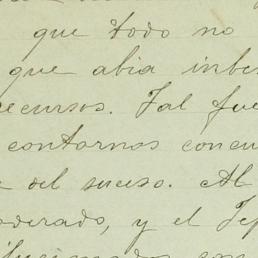 que todo no
que abia inber
recursos. Tal fue
contornos concu
del suceso. Al
oderado, y el